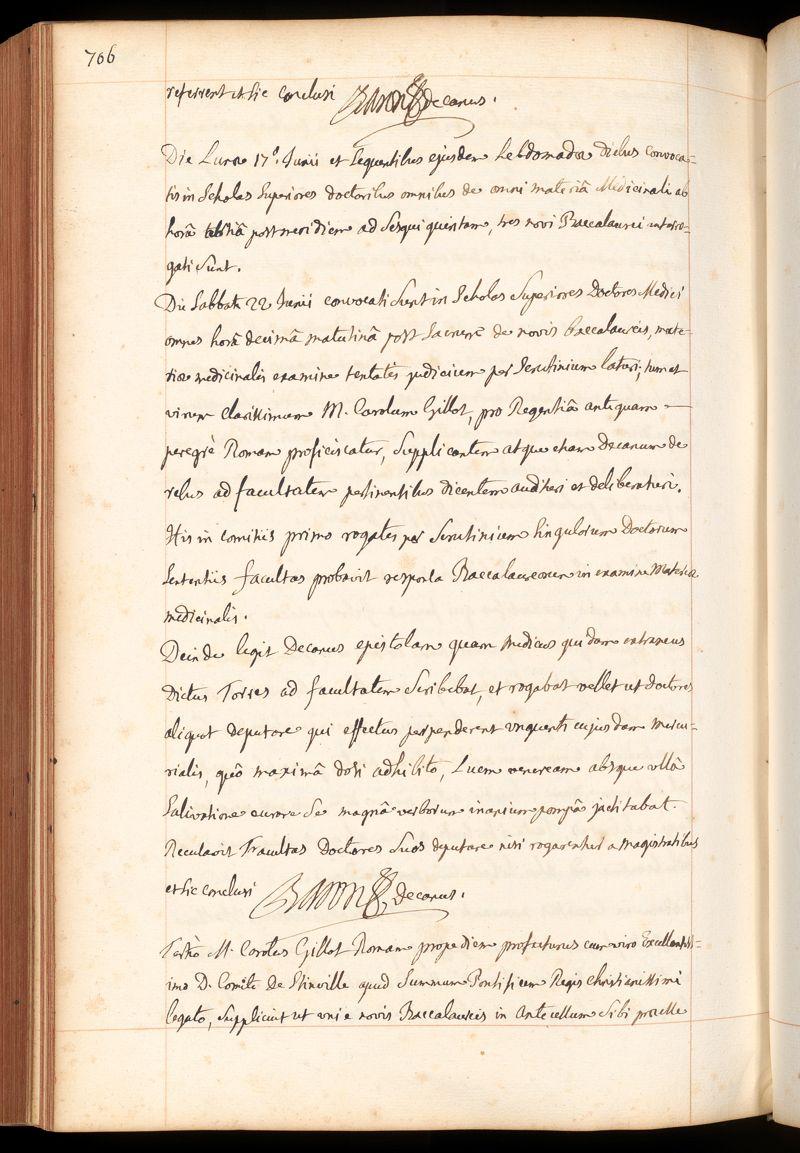 706
referrent et sic conclusi Baron decanus.
Die Lunæ 17º. Junii et sequentibus ejusdem hebdomadæ diebus convoca-
tis in Scholas Superiores doctoribus omnibus de omni materiâ Medicinali ab
horâ tertiâ postmeridiem ad sesqui quintam, tres novi Baccalaurei interro-
gati sunt.
Die Sabbati 22 Junii convocati sunt in Scholas Superiores Doctores Medici
omnes horâ decimâ matutinâ post sacrum de novis baccalaureis, mate-
riæ medicinalis examine tentatis judicium per scrutinium laturi; tum et
virum clarissimum M. Carolum Gillot, pro Regentiâ antiquam
peregrè Romam proficiscatur, supplicantem atque etiam Decanum de
rebus ad facultatem pertinentibus dicentem audituri et deliberaturi.
His in comitiis primo rogatis per scrutinium singulorum Doctorum
sententiis facultas probavit responsa Baccalaureorum in examine Materiæ
medicinalis.
Deinde legit Decanus epistolam quam medicus quidam extraneus
Dictus Torres ad facultatem scribebat, et rogabat vellet ut doctores
aliquot deputare qui effectus perpenderent unguenti cujusdam mercu-
rialis, quô maximâ dosi adhibito, Luem veneream absque ullâ
salivatione curare se magnâ verborum inanium pompâ jactitabat.
Recusavit Facultas Doctores suos deputare nisi rogarentur a magistratibus
et sic conclusi Baron decanus.
Tertiò M. Carolus Gillot Romam propediem profecturus cum viro Excellentissi-
imo D. Comite De Stinville apud Summum Pontificem Regis christianissimi
legato, supplicuit ut unie novis Baccalaureis in Antecellum sibi